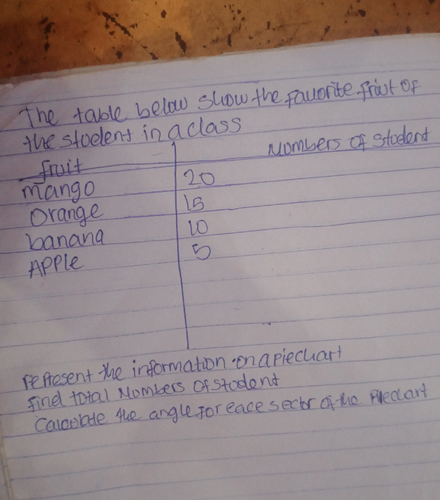 The table below show the favorite friut of
the stodent in a class
fruit Nombers of Stodent
mango 20
Orange 15
banana 10
APPle 5
rePresent the information on a piechart
find total Nombers of stodent
Calculate the angle for eace sector of the Piechart